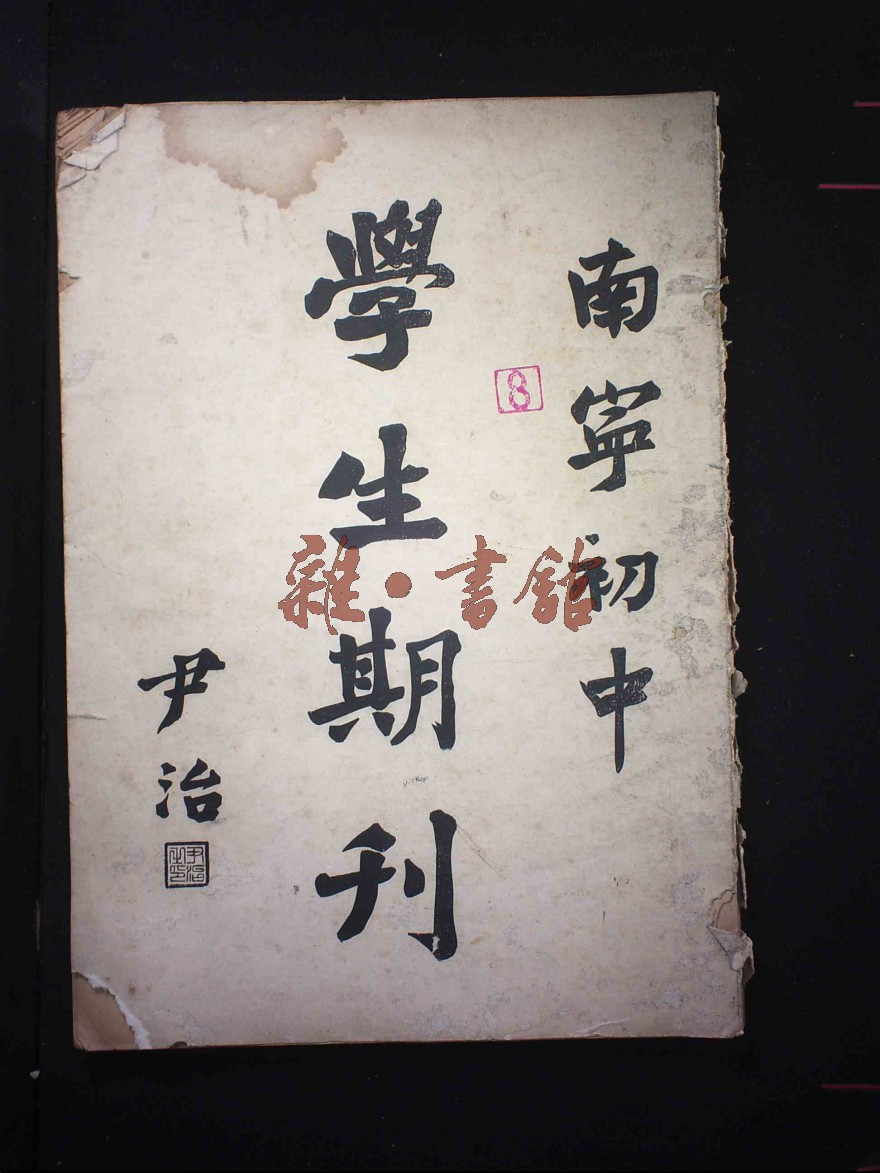 南寧初中
8
學生期刊
尹治
尹治之印
雜·書館